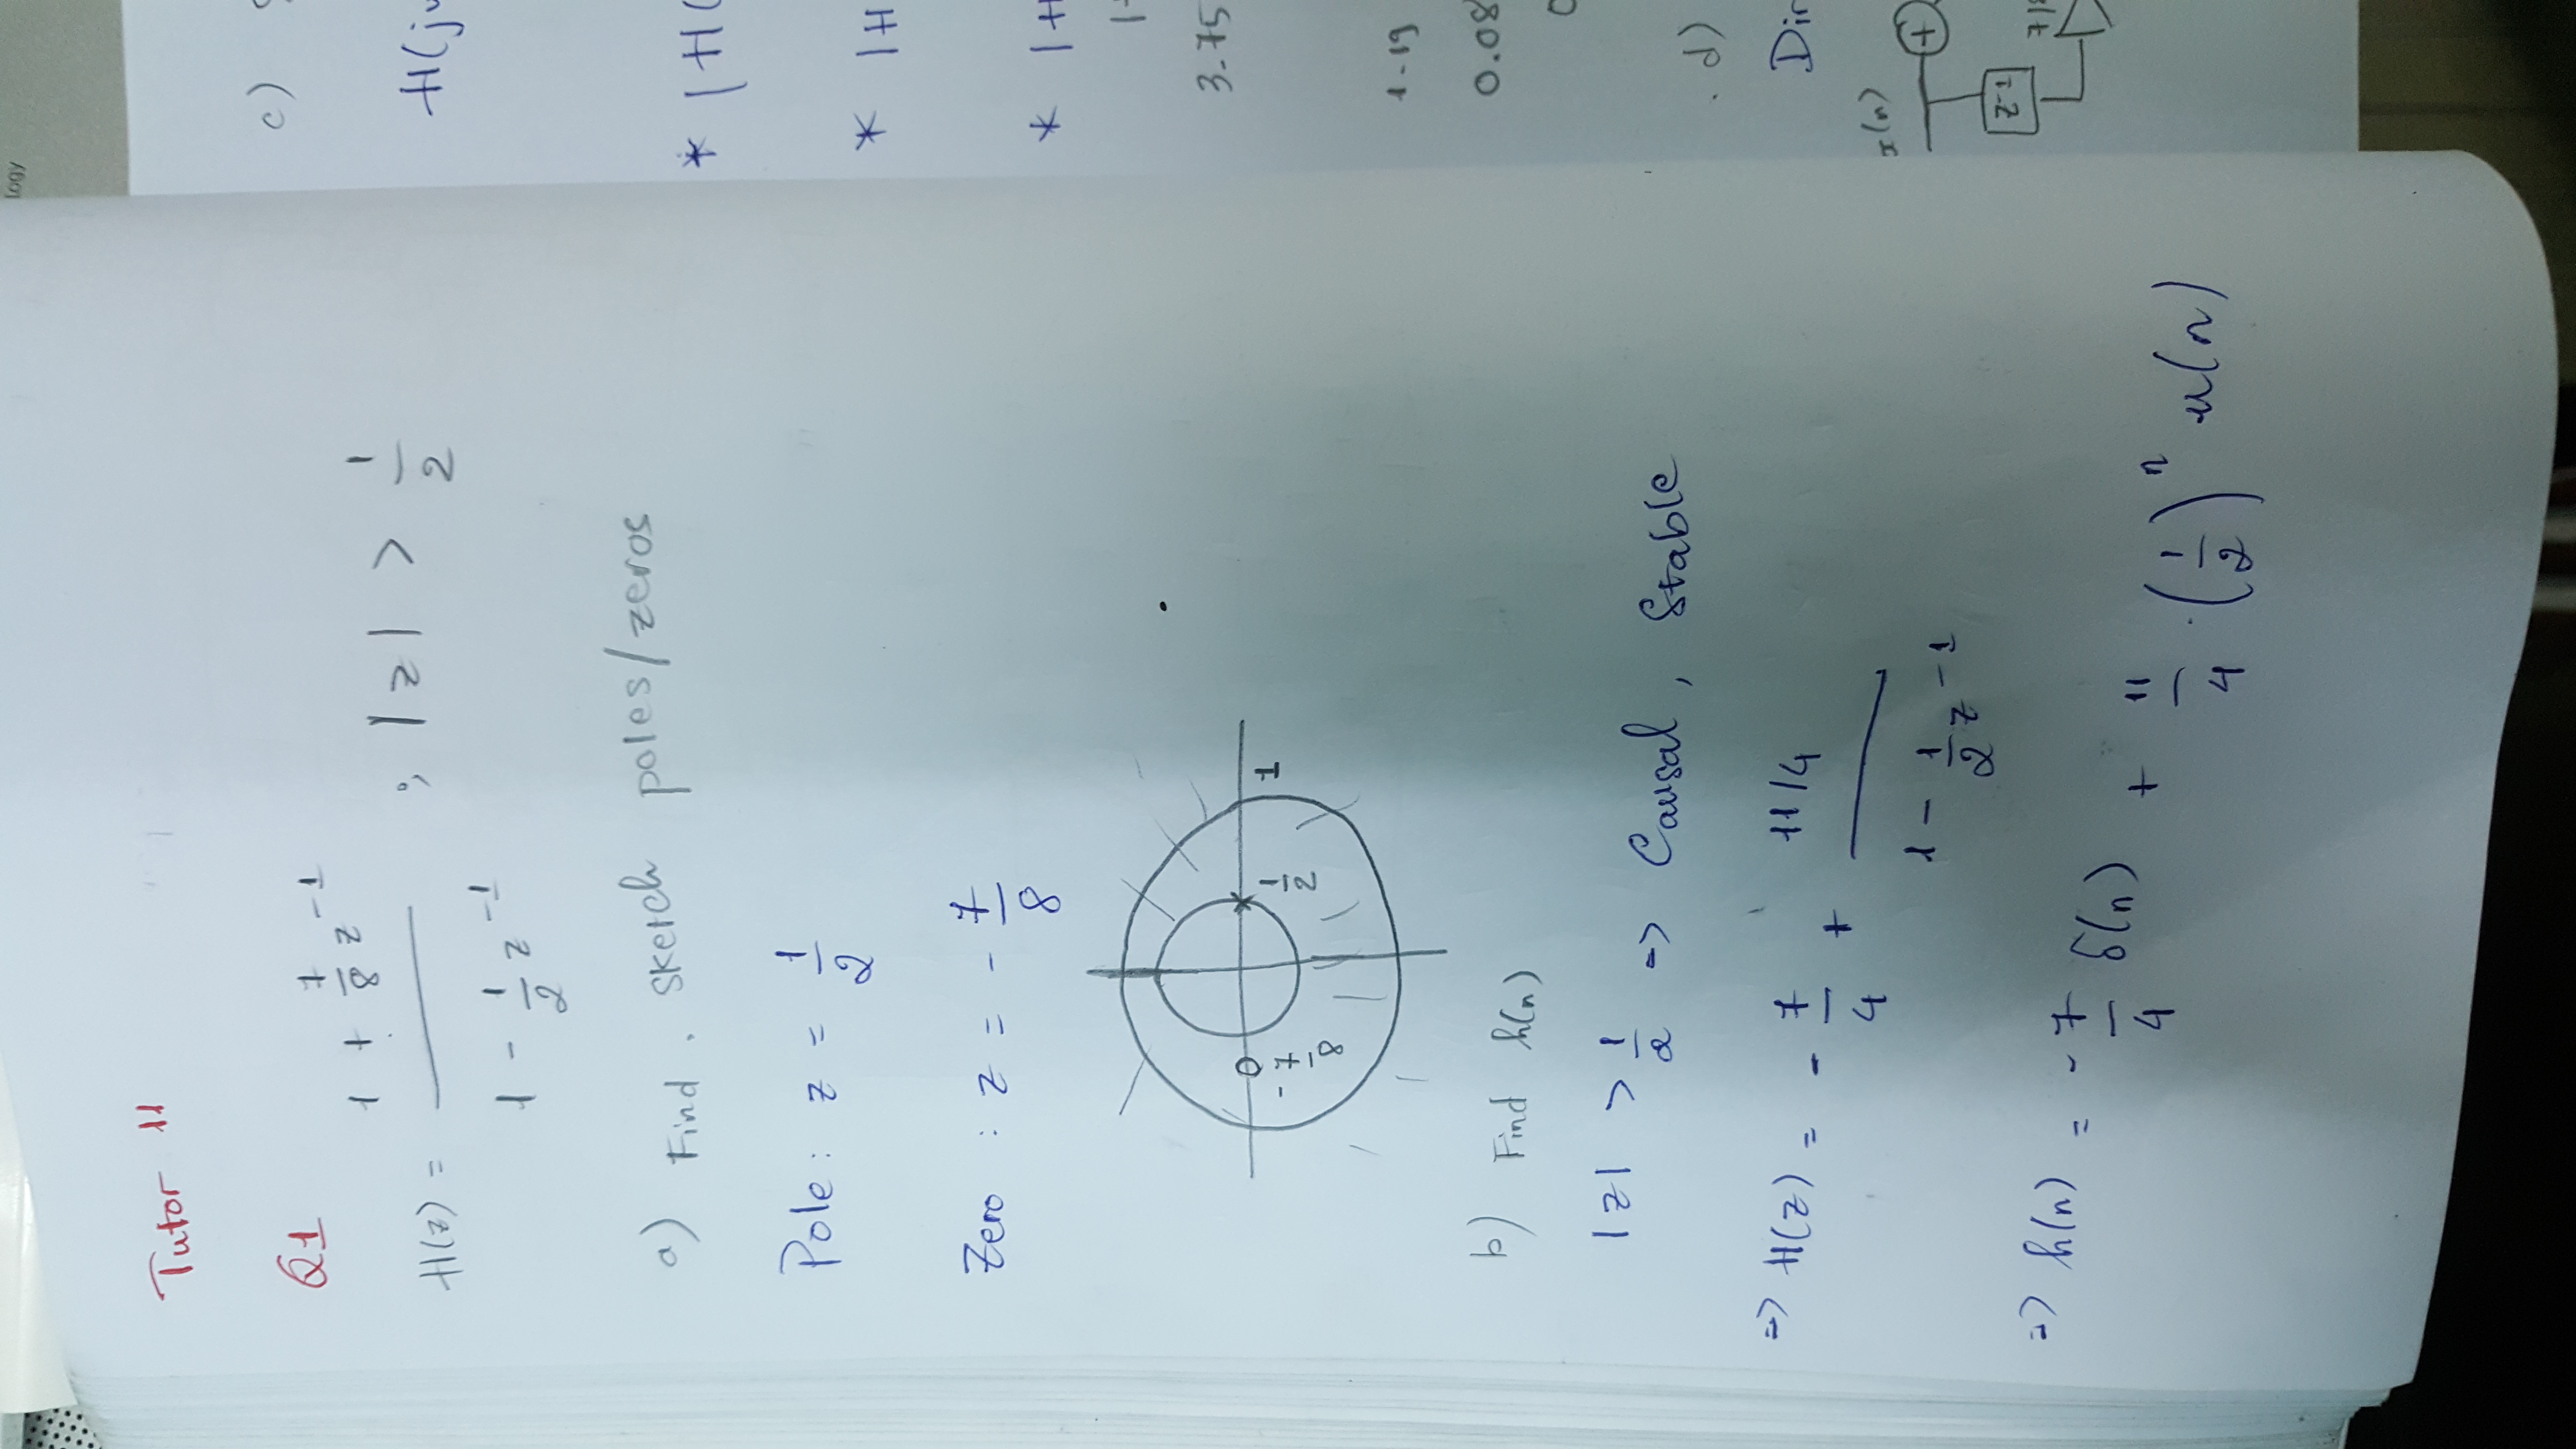 logy
Tutor 11
Q1
H(z) = (1 + 7/8 z^-1) / (1 - 1/2 z^-1) ; |z| > 1/2
a) Find, sketch poles/zeros
Pole: z = 1/2
Zero : z = - 7/8
- 7/8 1/2 1
b) Find h(n)
|z| > 1/2 => Causal, Stable
=> H(z) = - 7/4 + (11/4) / (1 - 1/2 z^-1)
=> h(n) = - 7/4 δ(n) + 11/4 . (1/2)^n u(n)
c)
H(j
* |H(
* |H
* |H
3.75
1.19
0.08
d)
Dir
x(n)
+
z-1
7/8